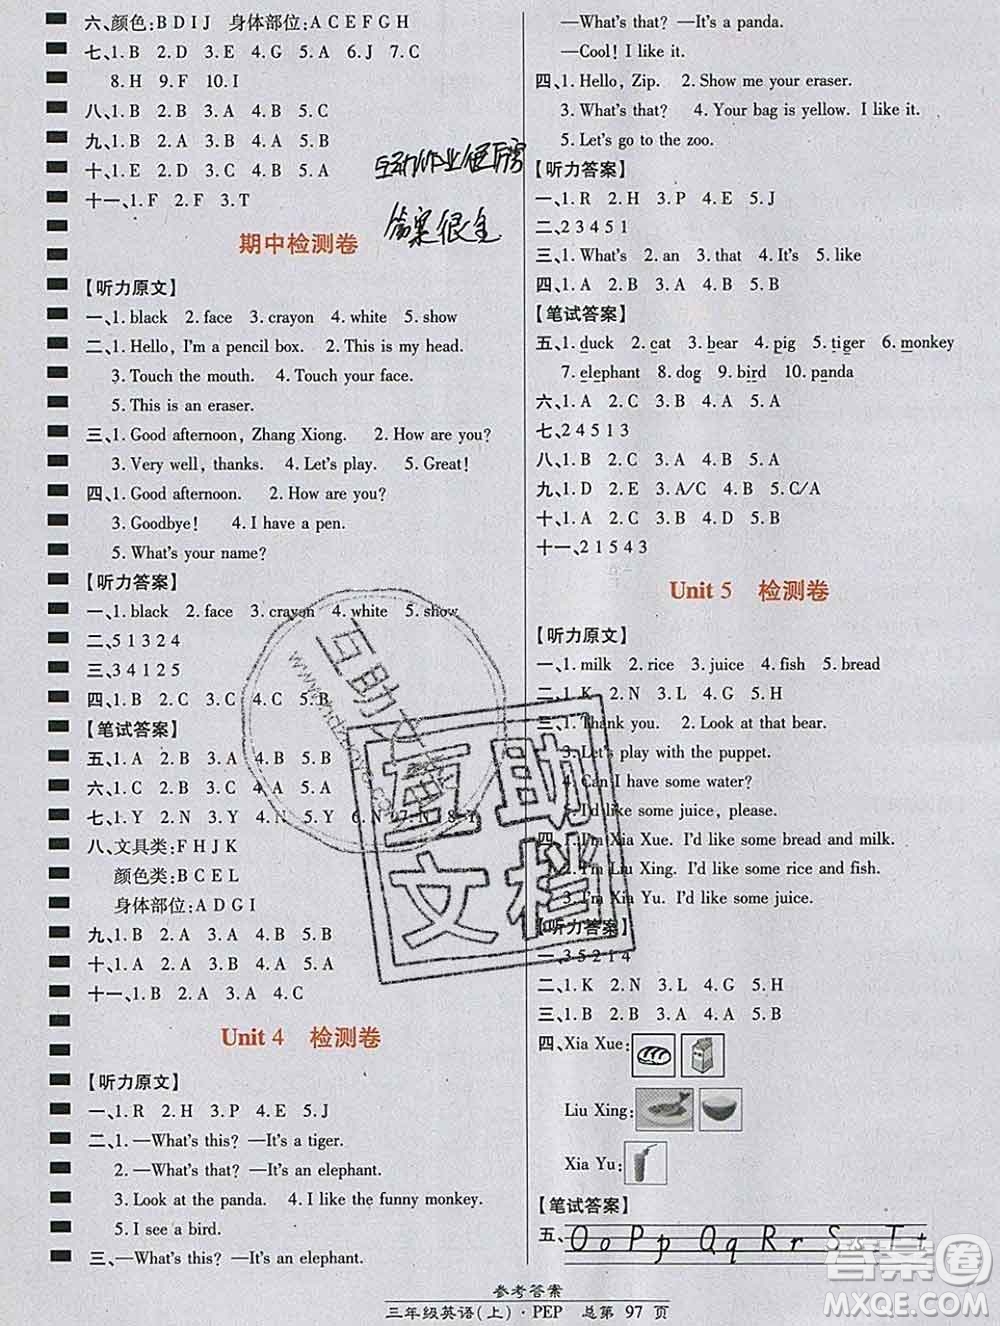 六、颜色:B D I J 身体部位:A C E F G H
七、1. B 2. D 3. E 4. G 5. A 6. J 7. C
8. H 9. F 10. I
八、1. B 2. B 3. A 4. B 5. C
九、1. B 2. B 3. A 4. B 5. A
十、1. E 2. D 3. A 4. C 5. B
十一、1. F 2. F 3. T
互动作业便所需
答案很全
期中检测卷
【听力原文】
一、1. black 2. face 3. crayon 4. white 5. show
二、1. Hello, I'm a pencil box. 2. This is my head.
3. Touch the mouth. 4. Touch your face.
5. This is an eraser.
三、1. Good afternoon, Zhang Xiong. 2. How are you?
3. Very well, thanks. 4. Let's play. 5. Great!
四、1. Good afternoon. 2. How are you?
3. Goodbye! 4. I have a pen.
5. What's your name?
【听力答案】
一、1. black 2. face 3. crayon 4. white 5. show
二、5 1 3 2 4
三、3 4 1 2 5
四、1. B 2. C 3. C 4. C 5. B
【笔试答案】
五、1. A 2. B 3. A 4. B 5. B
六、1. C 2. B 3. B 4. A 5. A
七、1. Y 2. Y 3. Y 4. N 5. Y 6. N 7. N 8. Y
八、文具类:F H J K
颜色类:B C E L
身体部位:A D G I
九、1. B 2. A 3. A 4. B 5. B
十、1. B 2. A 3. A 4. B 5. A
十一、1. B 2. A 3. A 4. C
Unit 4 检测卷
【听力原文】
一、1. R 2. H 3. P 4. E 5. J
二、1. —What's this? —It's a tiger.
2. —What's that? —It's an elephant.
3. Look at the panda. 4. I like the funny monkey.
5. I see a bird.
三、—What's this? —It's an elephant.
—What's that? —It's a panda.
—Cool! I like it.
四、1. Hello, Zip. 2. Show me your eraser.
3. What's that? 4. Your bag is yellow. I like it.
5. Let's go to the zoo.
【听力答案】
一、1. R 2. H 3. P 4. E 5. J
二、2 3 4 5 1
三、1. What's 2. an 3. that 4. It's 5. like
四、1. A 2. B 3. A 4. B 5. B
【笔试答案】
五、1. duck 2. cat 3. bear 4. pig 5. tiger 6. monkey
7. elephant 8. dog 9. bird 10. panda
六、1. A 2. C 3. B 4. A 5. A
七、2 4 5 1 3
八、1. B 2. C 3. A 4. B 5. A
九、1. D 2. E 3. A/C 4. B 5. C/A
十、1. A 2. C 3. A 4. B 5. A
十一、2 1 5 4 3
Unit 5 检测卷
【听力原文】
一、1. milk 2. rice 3. juice 4. fish 5. bread
二、1. K 2. N 3. L 4. G 5. H
三、1. Thank you. 2. Look at that bear.
3. Let's play with the puppet.
4. Can I have some water?
5. I'd like some juice, please.
四、1. I'm Xia Xue. I'd like some bread and milk.
2. I'm Liu Xing. I'd like some rice and fish.
3. I'm Xia Yu. I'd like some juice.
【听力答案】
一、3 5 2 1 4
二、1. K 2. N 3. L 4. G 5. H
三、1. B 2. A 3. A 4. B 5. B
四、Xia Xue:
Liu Xing:
Xia Yu:
【笔试答案】
五、Oo Pp Qq Rr Ss Tt
互助文档
互助
文档
答案圈
MXQE.COM
参考答案
三年级英语(上)·PEP 总第 97 页